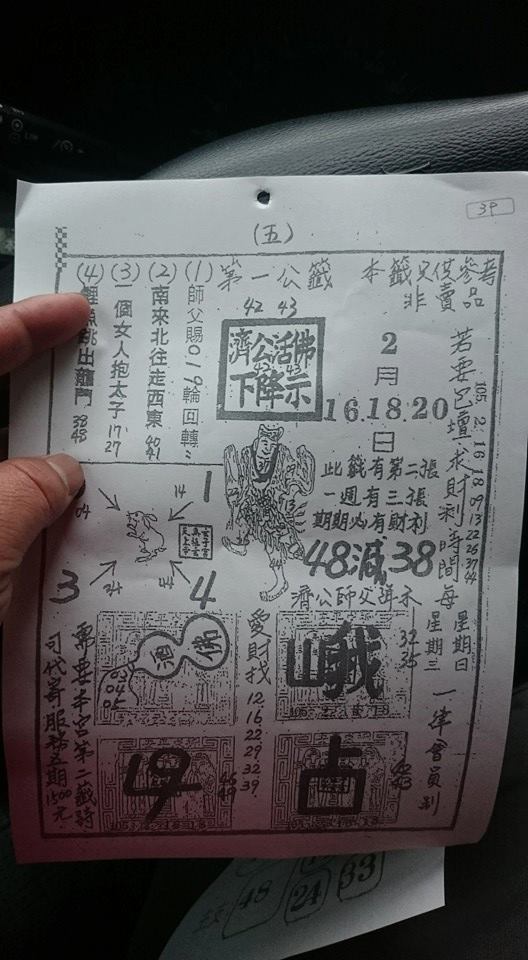 39
(五)
本籤只供參考
非賣品
第一公籤
42 43
濟公活佛
下降示
2月
16.18.20
日
(1) 師父賜019輪回轉
(2) 南來北往走西東 40 41
(3) 一個女人抱太子 17 27
(4) 鯉魚跳出龍門 38 48
此籤有第二張
一週有三張
期期必有財利
48減38
濟公師父詳示
105 2 16 18 09 13 22 26 37 44
星期日
星期三
一律會員別
1
14
04
3
24
4
愛財找
12
16
22
29
32
39
佛
酒
03
04
05
峨
32
35
占
42
43
需要本宮第二籤詩
可代寄服務五期1500元
48
24
33